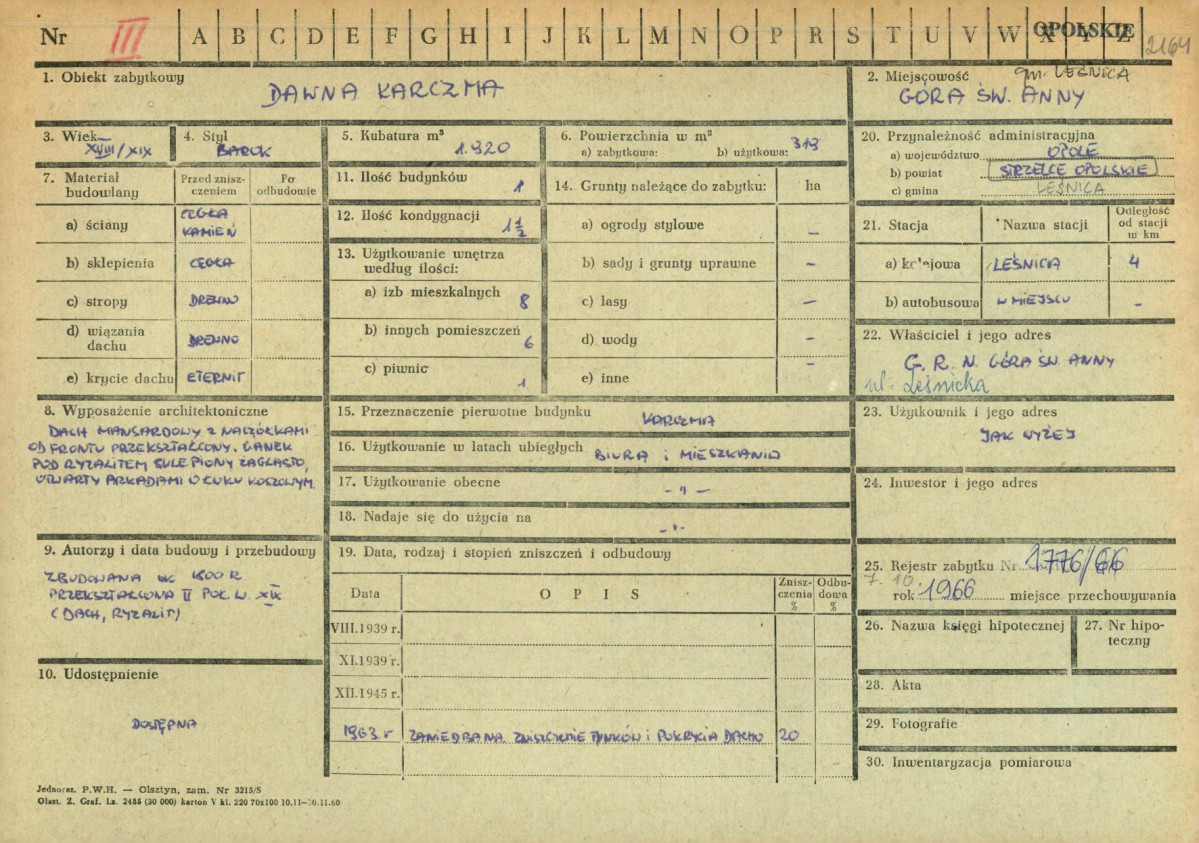 Nr III A B C D E F G H I J K L M N O P R S T U V W X Y Z OPOLSKIE 2164
1. Obiekt zabytkowy
DAWNA KARCZMA
2. Miejscowość gm. LEŚNICA
GÓRA ŚW. ANNY
3. Wiek
XVIII/XIX
4. Styl
BAROK
5. Kubatura m³
1.920
6. Powierzchnia w m²
a) zabytkowa: b) użytkowa: 313
7. Materiał budowlany
Przed znisz-
czeniem
Po
odbudowie
a) ściany CEGŁA
KAMIEŃ
b) sklepienia CEGŁA
c) stropy DREWNO
d) wiązania
dachu DREWNO
e) krycie dachu ETERNIT
8. Wyposażenie architektoniczne
DACH MANSARDOWY Z NACZÓŁKAMI
OD FRONTU PRZEKSZTAŁCONY. GANEK
POD RYZALITEM SKLEPIONY ŻAGLASTO,
OTWARTY ARKADAMI O ŁUKU KOSZOWYM.
9. Autorzy i data budowy i przebudowy
ZBUDOWANA OK 1800 R
PRZEKSZTAŁCONA II POŁ. W. XIX
(DACH, RYZALIT)
10. Udostępnienie
DOSTĘPNA
11. Ilość budynków 1
12. Ilość kondygnacji 1 1/2
13. Użytkowanie wnętrza
według ilości:
a) izb mieszkalnych 8
b) innych pomieszczeń 6
c) piwnic 1
14. Grunty należące do zabytku: ha
a) ogrody stylowe –
b) sady i grunty uprawne –
c) lasy –
d) wody –
e) inne –
15. Przeznaczenie pierwotne budynku KARCZMA
16. Użytkowanie w latach ubiegłych BIURA i MIESZKANIA
17. Użytkowanie obecne – " –
18. Nadaje się do użycia na – " –
19. Data, rodzaj i stopień zniszczeń i odbudowy
Data O P I S Znisz-
czenia
% Odbu-
dowa
%
VIII.1939 r.
XI.1939 r.
XII.1945 r.
1963 r ZANIEDBANA ZNISZCZENIE TYNKÓW i POKRYCIA DACHU 20
20. Przynależność administracyjna
a) województwo OPOLE
b) powiat STRZELCE OPOLSKIE
c) gmina LEŚNICA
21. Stacja Nazwa stacji Odległość
od stacji
w km
a) kolejowa LEŚNICA 4
b) autobusowa W MIEJSCU –
22. Właściciel i jego adres
G. R. N. GÓRA ŚW. ANNY
ul. Leśnicka
23. Użytkownik i jego adres
JAK WYŻEJ
24. Inwestor i jego adres
25. Rejestr zabytku Nr 1776/66
7. 10.
rok 1966 miejsce przechowywania
26. Nazwa księgi hipotecznej
27. Nr hipo-
teczny
28. Akta
29. Fotografie
30. Inwentaryzacja pomiarowa
Jednoraz. P.W.H. — Olsztyn, zam. Nr 3215/S
Olszt. Z. Graf. Lz. 2485 (30 000) karton V kl. 220 70x100 10.11—30.11.60